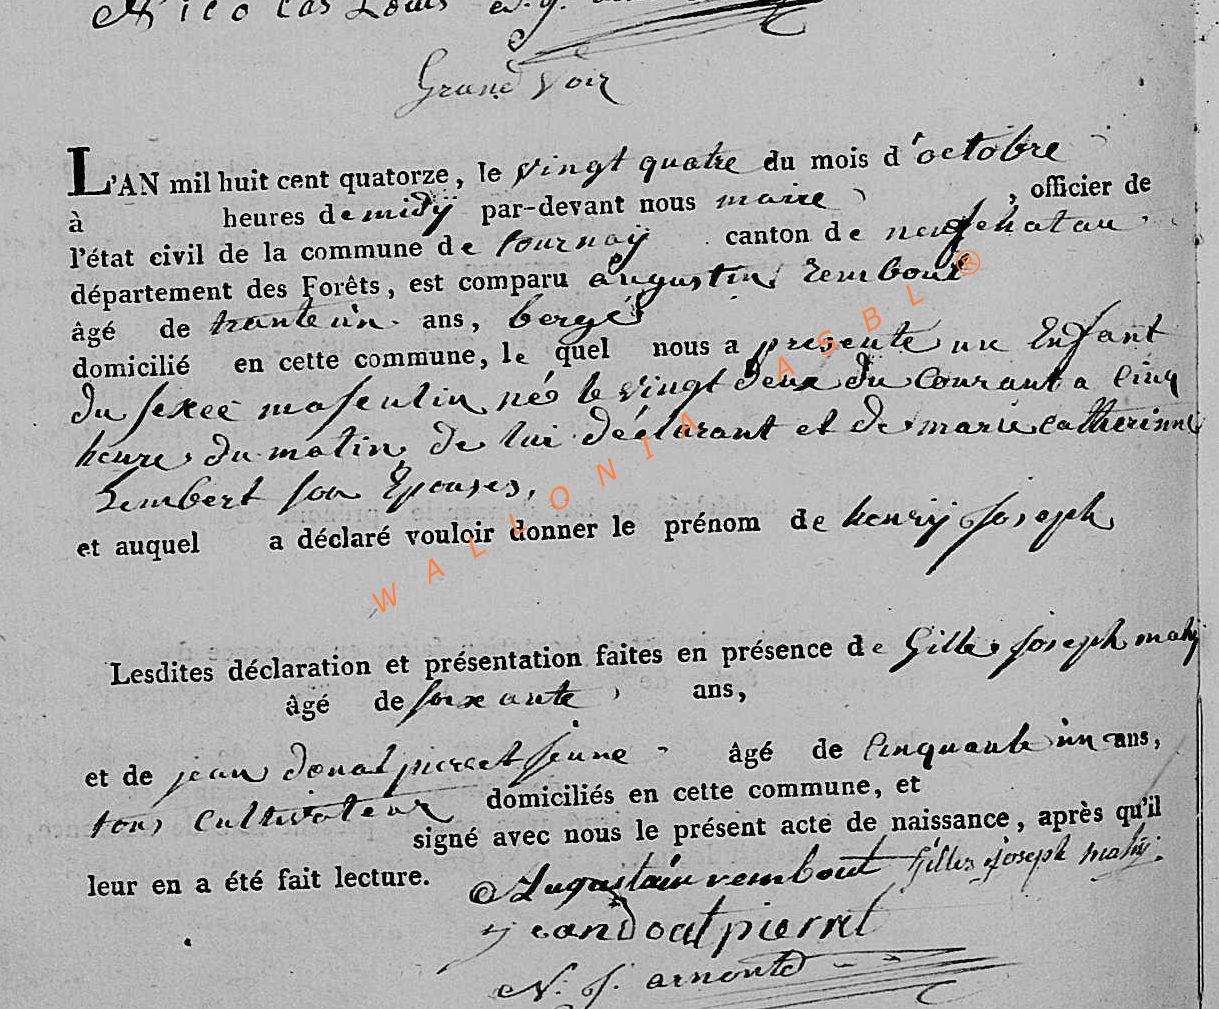 Nicolas Louis
Grand Voir
L'AN mil huit cent quatorze, le vingt quatre du mois d'octobre
à heures de midÿ par-devant nous maire , officier de
l'état civil de la commune de tournaÿ canton de neufchatau
département des Forêts, est comparu augustin rembout
âgé de trante un ans, berger
domicilié en cette commune, le quel nous a presente un Enfant
du sexee masculin né le vingt deux du Courant a Cinq
heure du matin de lui déclarant et de marie catherinne
Lembert son Epouses,
et auquel a déclaré vouloir donner le prénom de henrÿ Joseph
WALLONIA ASBL ®
Lesdites déclaration et présentation faites en présence de Gilles joseph mahÿ
âgé de soixante ans,
et de jean donat pierret jeune âgé de Cinquante un ans,
tous Cultivateur domiciliés en cette commune, et
signé avec nous le présent acte de naissance, après qu'il
leur en a été fait lecture.
Augustain rembout Gilles joseph mahÿ
jean Doat pierret
N. j. arnould